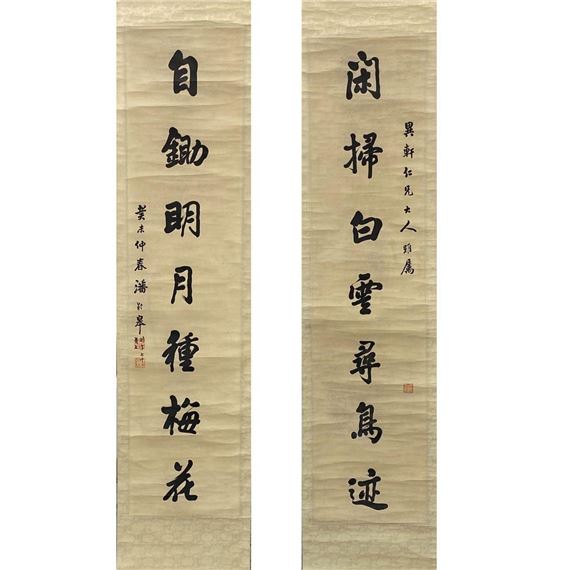 異軒仁兄大人雅屬
閑掃白雲尋鳥迹
自鋤明月種梅花
癸未仲春潘齡皋